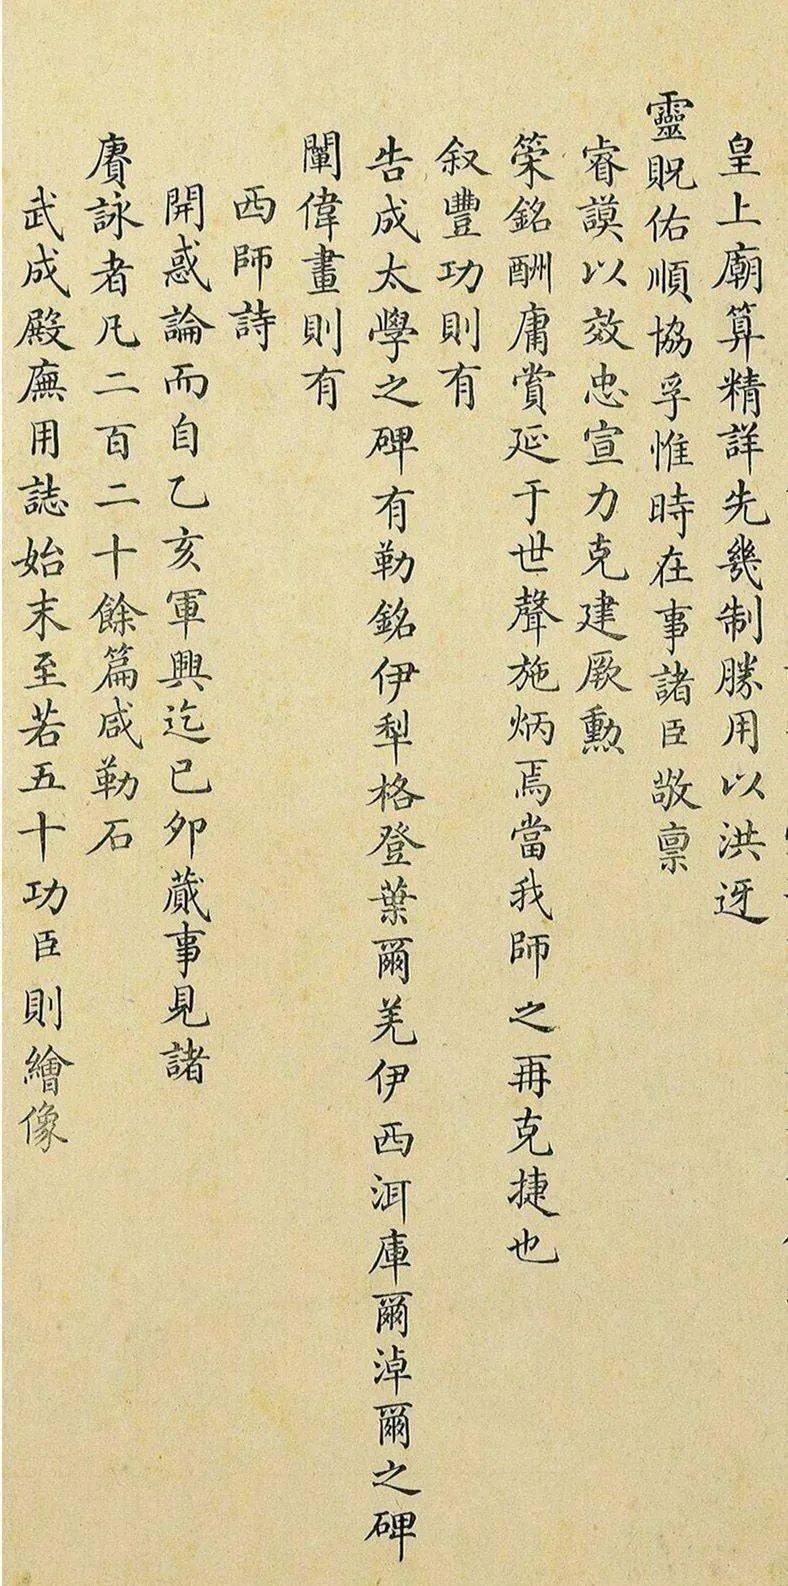 皇上廟算精詳先幾制勝用以洪迓
靈貺佑順協孚惟時在事諸臣敬禀
睿謨以效忠宣力克建厥勳
策銘酬庸賞延于世聲施炳焉當我師之再克捷也
叙豐功則有
告成太學之碑有勒銘伊犁格登葉爾羌伊西洱庫爾淖爾之碑
闡偉畫則有
西師詩
開惑論而自乙亥軍興迄己卯蕆事見諸
賡詠者凡二百二十餘篇咸勒石
武成殿廡用誌始末至若五十功臣則繪像